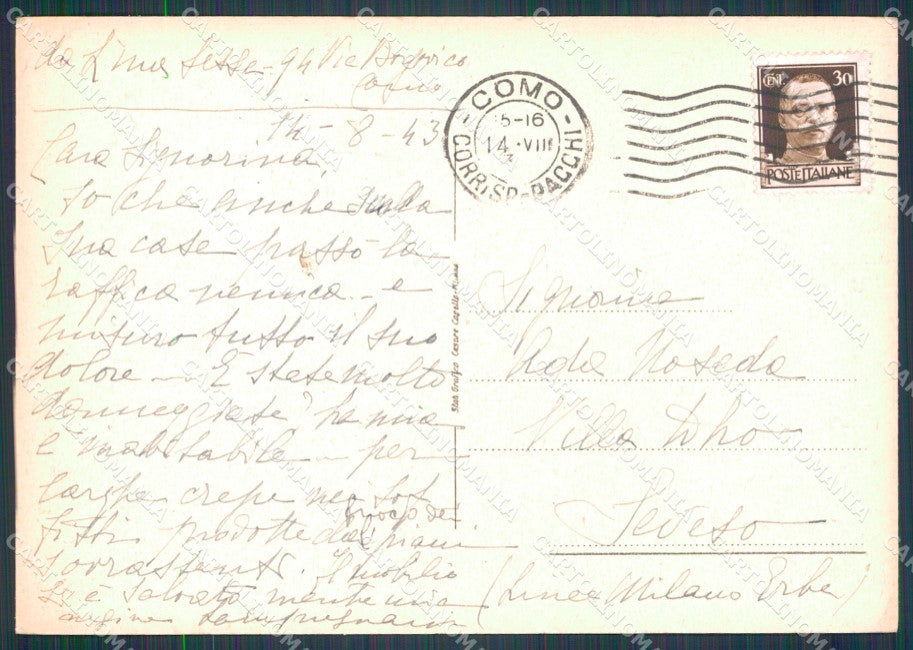 da Lina Sessa - 94 Via Borgovico
Como
14 - 8 - 43
Cara Signorina
So che anche sulla
Sua casa passò la
raffica nemica - e
misuro tutto il suo
dolore - È stata molto
danneggiata? La mia
è inabitabile - per
larghe crepe nei sof
fitti prodotte dal crollo dei piani
sovrastanti. Il mobilio
si è salvato mentre mia
COMO
15-16
14 · VIII
CORRISP-PACCHI
CENT 30
POSTE ITALIANE
Stab Grafico Cesare Capello-Milano
Signorina
Ada Noseda
Villa Dho
Seveso
(Linea Milano Erba)
CARTOLINOMANIA